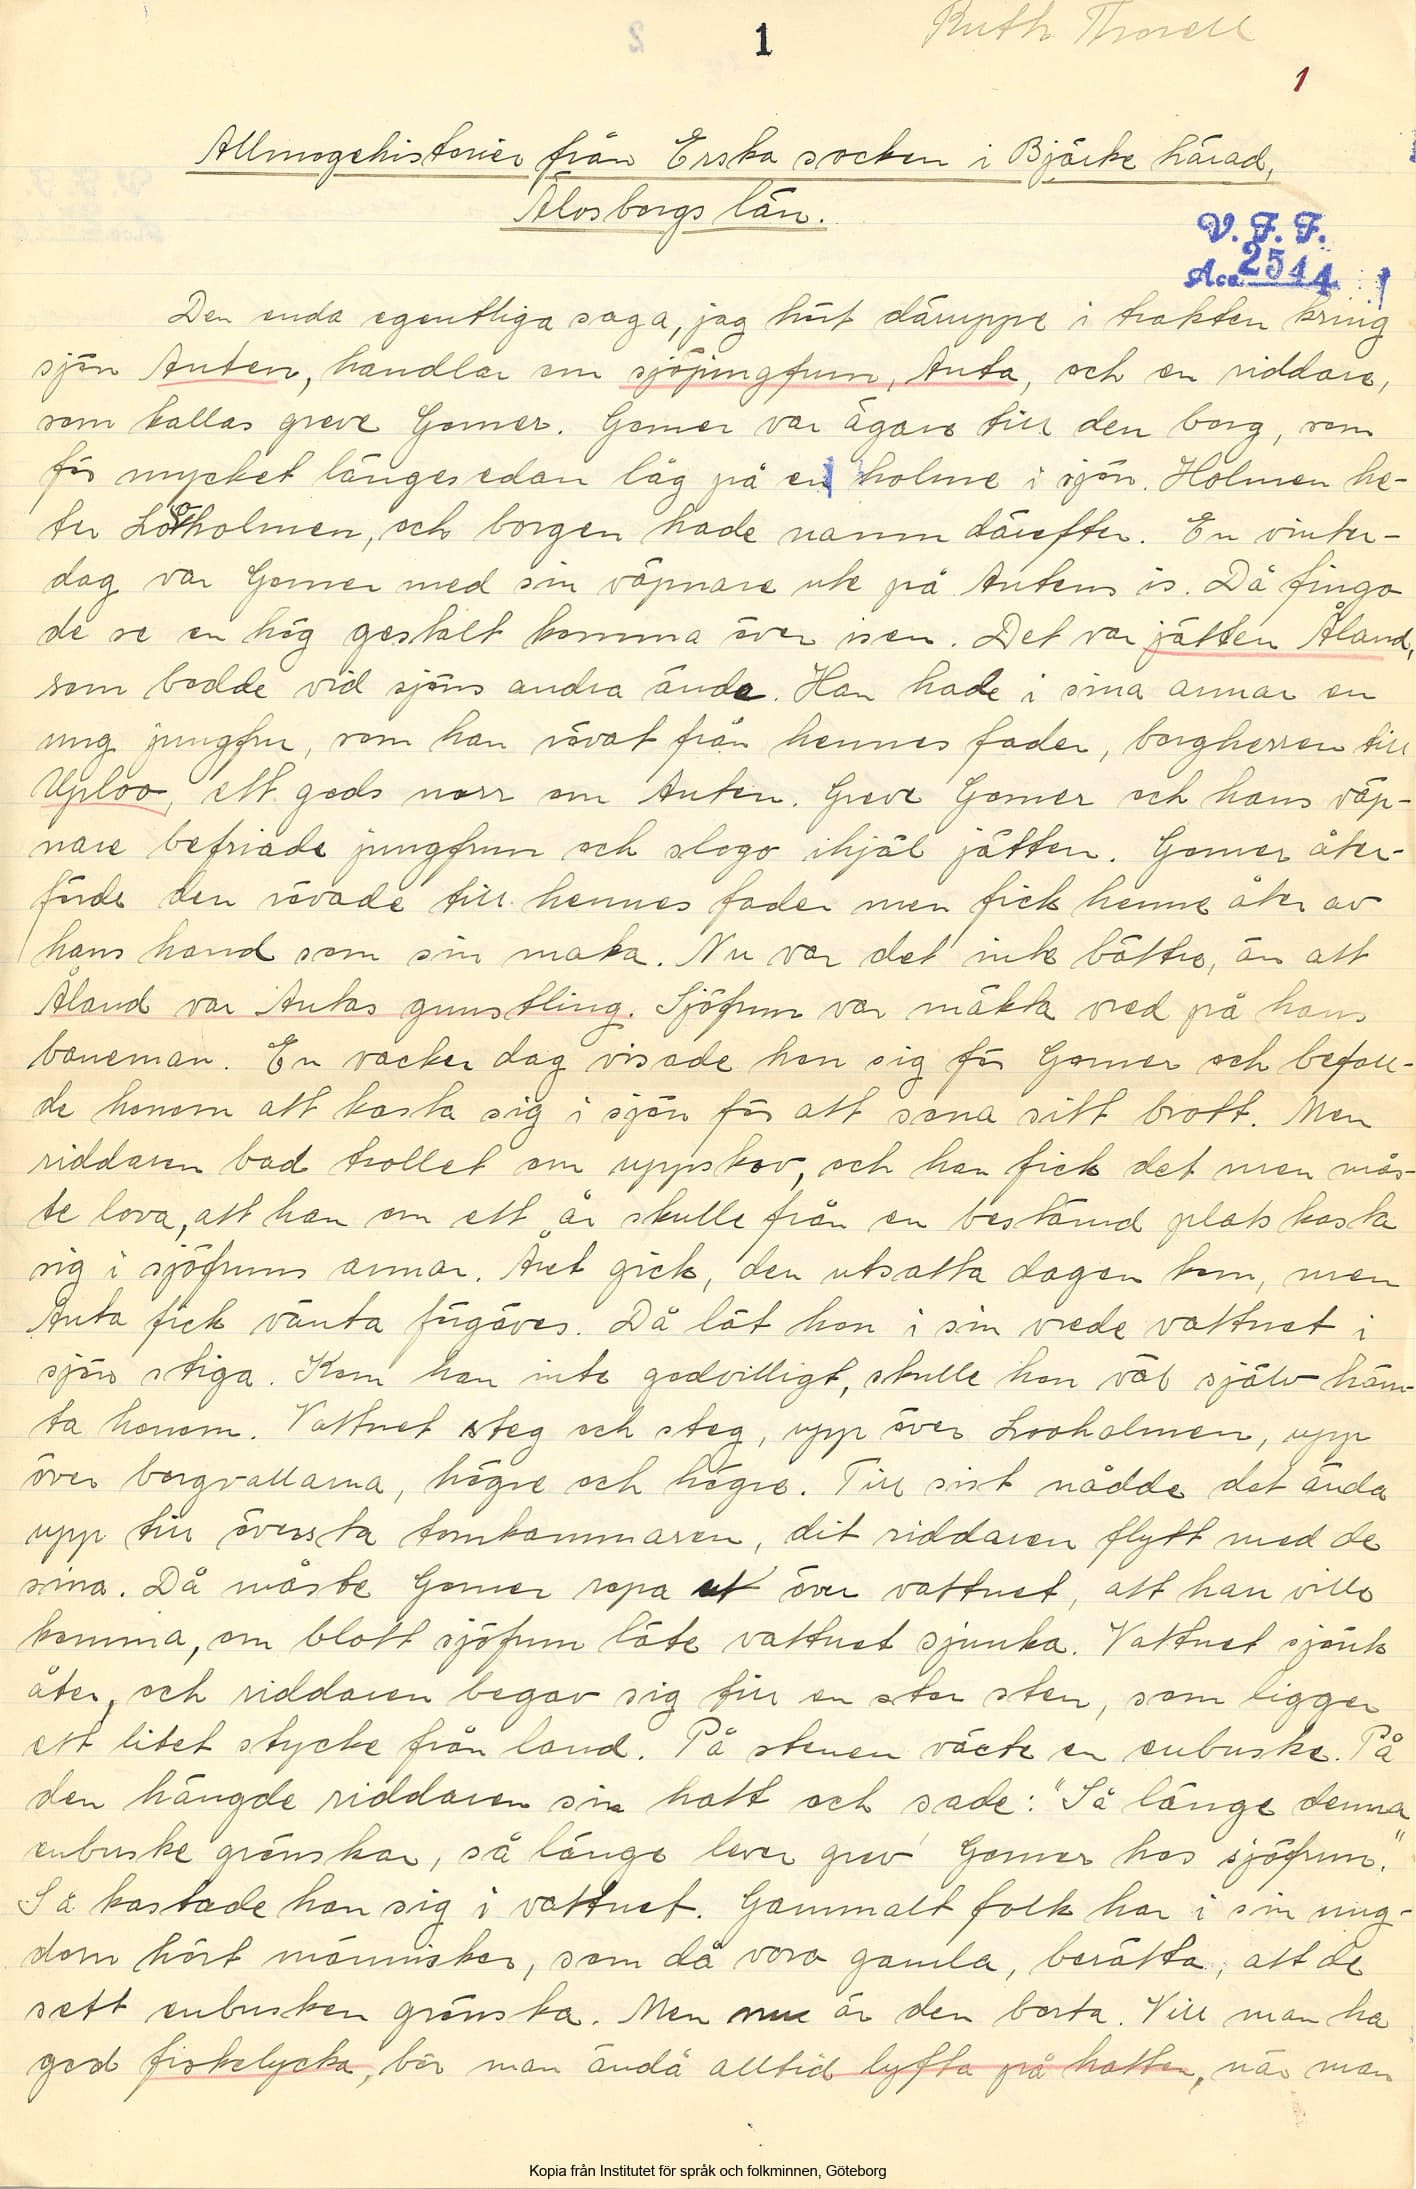 1
Ruth Thorell
1
Allmogehistorier från Erska socken i Bjärke härad,
Älvsborgs län.
V. F. F.
Acc. 2544
Den enda egentliga saga, jag hört däruppe i trakten kring
sjön Anten, handlar om sjöjungfrun, Anta, och en riddare,
som kallas greve Gomer. Gomer var ägare till den borg, som
för mycket längesedan låg på en holme i sjön. Holmen he-
ter Looholmen, och borgen hade namn därefter. En vinter-
dag var Gomer med sin väpnare ute på Antens is. Då fingo
de se en hög gestalt komma över isen. Det var jätten Åland,
som bodde vid sjöns andra ände. Han hade i sina armar en
ung jungfru, som han rövat från hennes fader, borgherren till
Uploo, ett gods norr om Anten. Greve Gomer och hans väp-
nare befriade jungfrun och slogo ihjäl jätten. Gomer åter-
förde den rövade till hennes fader men fick henne åter av
hans hand som sin maka. Nu var det inte bättre, än att
Åland var Antas gunstling. Sjöfrun var mäkta vred på hans
baneman. En vacker dag visade hon sig för Gomer och befall-
de honom att kasta sig i sjön för att sona sitt brott. Men
riddaren bad trollet om uppskov, och han fick det men mås-
te lova, att han om ett år skulle från en bestämd plats kasta
sig i sjöfruns armar. Året gick, den utsatta dagen kom, men
Anta fick vänta förgäves. Då lät hon i sin vrede vattnet i
sjön stiga. Kom han inte godvilligt, skulle hon väl själv häm-
ta honom. Vattnet steg och steg, upp över Looholmen, upp
över borgvallarna, högre och högre. Till sist nådde det ända
upp till översta tornkammaren, dit riddaren flytt med de
sina. Då måste Gomer ropa ut över vattnet, att han ville
komma, om blott sjöfrun läte vattnet sjunka. Vattnet sjönk
åter, och riddaren begav sig till en stor sten, som ligger
ett litet stycke från land. På stenen växte en enbuske. På
den hängde riddaren sin hatt och sade: "Så länge denna
enbuske grönskar, så länge lever grev Gomer hos sjöfrun."
Så kastade han sig i vattnet. Gammalt folk har i sin ung-
dom hört människor, som då voro gamla, berätta, att de
sett enbusken grönska. Men nu är den borta. Vill man ha
god fiskelycka, bör man ändå alltid lyfta på hatten, när man
Kopia från Institutet för språk och folkminnen, Göteborg